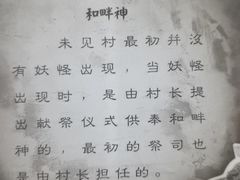 和畔神
未见村最初并没
有妖怪出现，当妖怪
出现时，是由村长提
出献祭仪式供奉和畔
神的，最初的祭司也
是由村长担任的。